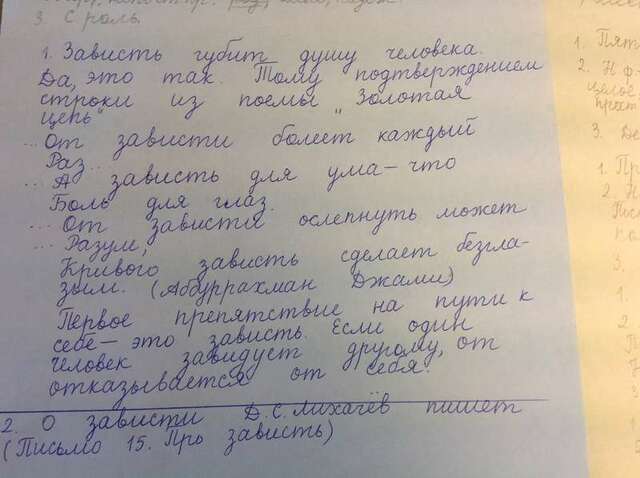 3. С роль
1. Зависть губит душу человека.
Да, это так. Тому подтверждением
строки из поемы „Золотая
цепь"
... От зависти болеет каждый
Раз...
... А зависть для ума — что
Боль для глаз.
... От зависти ослепнуть может
Разум,
Кривого зависть сделает безгла-
зым. (Абдуррахман Джами)
Первое препятствие на пути к
себе — это зависть. Если один
человек завидует другому, от
отказывается от себя.
2. О зависти Д.С. Лихачёв пишет
(Письмо 15. Про зависть)
1.
2. Н
3.
1.
2. Н
3.
1.
2